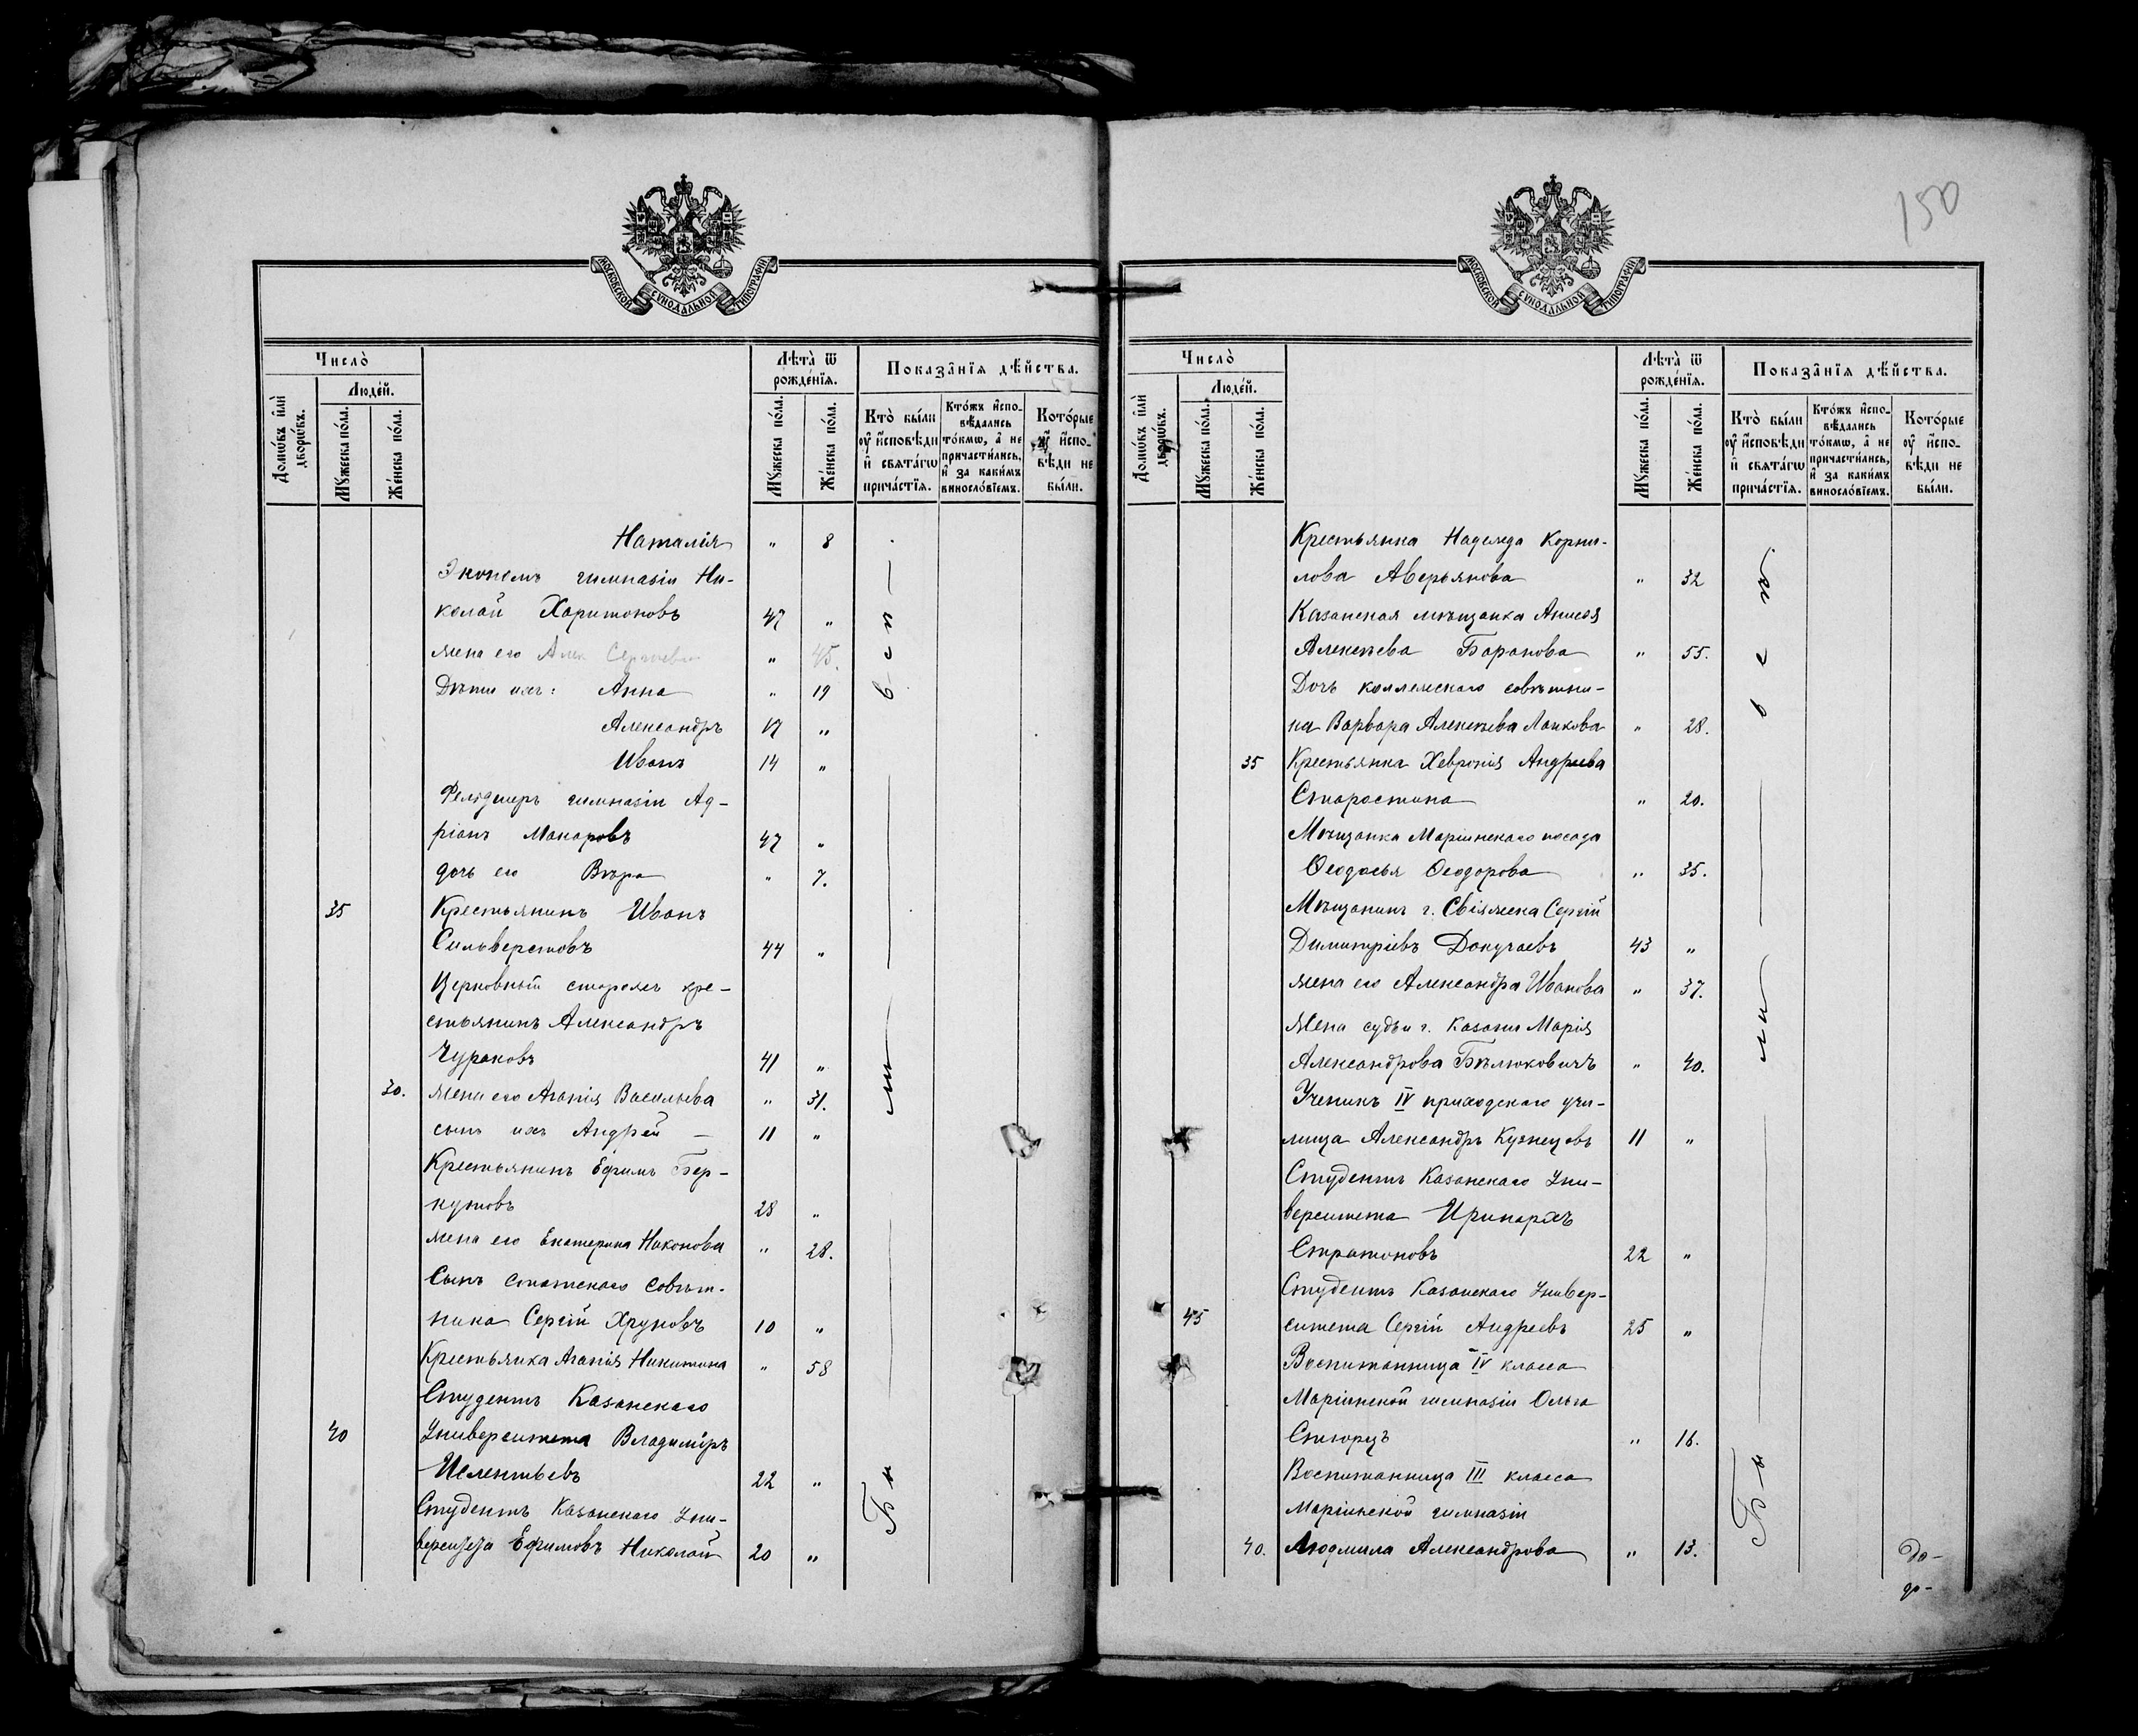 150
МОСКОВСКОЙ СУНОДАЛЬНОЙ ТИПОГРАФІИ
Число̀
Люде́й.
Домѡ́въ и҆лѝ дворѡ́въ.
Мꙋ́жеска по́ла.
Же́нска по́ла.
Лѣта̀ ѿ рожде́нїѧ.
Мꙋ́жеска по́ла.
Же́нска по́ла.
Показа̑нїѧ дѣ́йства.
Кто̀ бы́ли оу҆ и҆сповѣди и҆ свѧта́гѡ прича́стїѧ.
Кто́жъ и҆сповѣдались то́кмѡ, а҆ не причасти́лись, и҆ за каки́мъ винословїемъ.
Кото́рые оу҆ и҆сповѣди не бы́ли.
Наталія " 8
Экономъ гимназіи Ни-
колай Харитоновъ 47 "
жена его Алек Сергѣева " 45.
Дѣти ихъ: Анна " 19
Александръ 17 "
Иванъ 14 "
Фельдшеръ гимназіи Ад-
ріанъ Макаровъ 47 "
дочь его Вѣра " 7.
35 Крестьянинъ Иванъ
Сильверстовъ 44 "
Церковный сторожъ кре-
стьянинъ Александръ
Чураковъ 41 "
30. жена его Агапія Васильева " 31.
сынъ ихъ Андрей — 11 "
Крестьянинъ Ефимъ Бер-
кутовъ 28 "
жена его Екатерина Никонова " 28.
Сынъ статскаго совѣт-
ника Сергій Хруновъ 10 "
Крестьянка Агапія Никитина " 58
Студентъ Казанскаго
40 Университета Владиміръ
Ислентьевъ 22 "
Студентъ Казанскаго Уни-
верситета Ефимовъ Николай 20 "
Бы — ли — вси —
МОСКОВСКОЙ СУНОДАЛЬНОЙ ТИПОГРАФІИ
Число̀
Люде́й.
Домѡ́въ и҆лѝ дворѡ́въ.
Мꙋ́жеска по́ла.
Же́нска по́ла.
Лѣта̀ ѿ рожде́нїѧ.
Мꙋ́жеска по́ла.
Же́нска по́ла.
Показа̑нїѧ дѣ́йства.
Кто̀ бы́ли оу҆ и҆сповѣди и҆ свѧта́гѡ прича́стїѧ.
Кто́жъ и҆сповѣдались то́кмѡ, а҆ не причасти́лись, и҆ за каки́мъ винословїемъ.
Кото́рые оу҆ и҆сповѣди не бы́ли.
Крестьянка Надежда Корни-
лова Аверьянова " 32
Казанская мѣщанка Анисія
Алексѣева Баранова " 55.
Дочь коллежскаго совѣтни-
ка Варвара Алексѣева Лаикова " 28.
35 Крестьянка Хевронія Андреева
Старостина " 20.
Мѣщанка Маріинскаго посада
Ѳеодосья Ѳеодорова " 35.
Мѣщанинъ г. Свіяжска Сергій
Димитріевъ Докучаевъ 43 "
жена его Александра Иванова " 37.
Жена судьи г. Казани Марія
Александрова Бѣлюковичъ " 40.
Ученикъ IV приходскаго учи-
лища Александръ Кузнецовъ 11 "
Студентъ Казанскаго Уни-
верситета Иринархъ
Стратоновъ 22 "
Студентъ Казанскаго Универ-
45 ситета Сергій Андреевъ 25 "
Воспитанница IV класса
Маріинской гимназіи Ольга
Стюрцъ " 16.
Воспитанница III класса
Маріинской гимназіи
40. Людмила Александрова " 13.
Бы — ли — всѣ
До-
до-